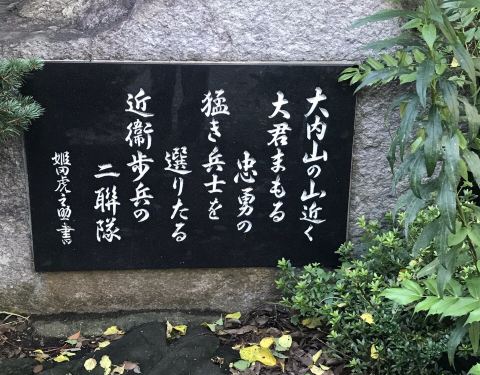 大内山の山近く
大君まもる
忠勇の
猛き兵士を
選りたる
近衞歩兵の
二聯隊
姫田虎之助書